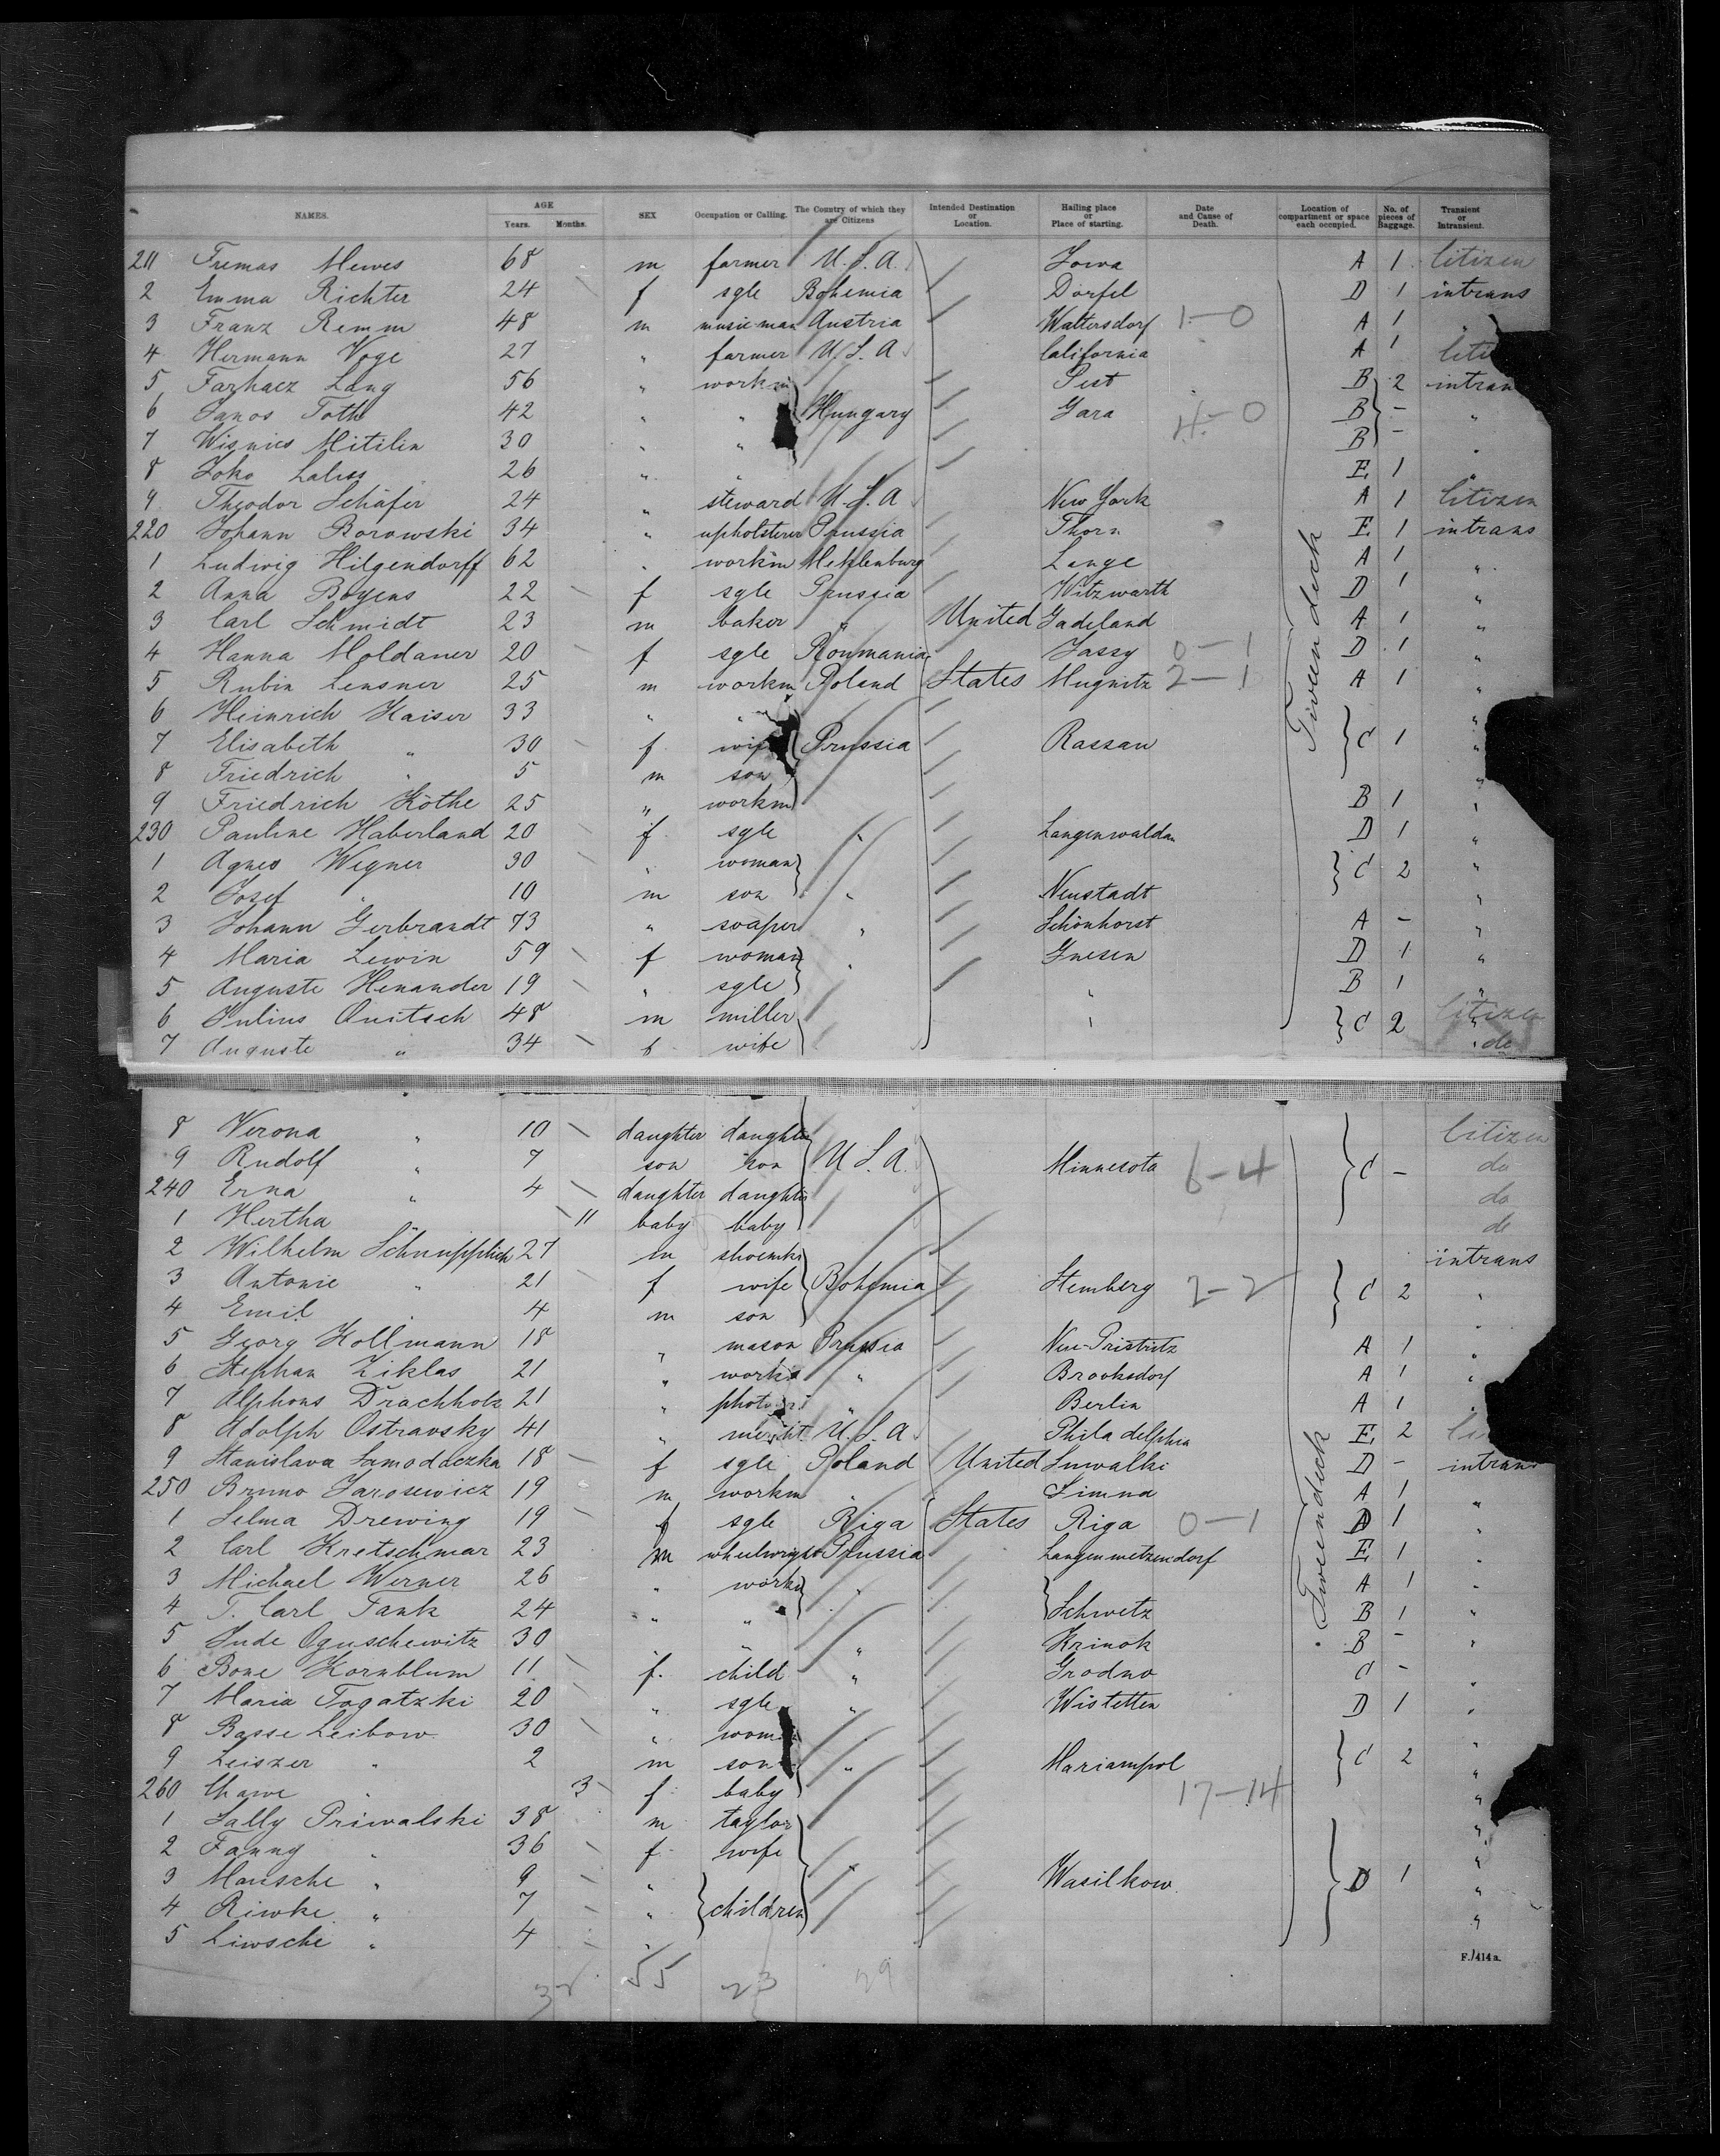 NAMES. AGE Years. Months. SEX Occupation or Calling. The Country of which they are Citizens Intended Destination or Location. Hailing place or Place of starting. Date and Cause of Death. Location of compartment or space each occupied. No. of pieces of Baggage. Transient or Intransient.
211 Mewes 68 m farmer U.S.A. Iowa A 1 Citizen
2 Emma Richter 24 f sgle Bohemia Dörfel D 1 intrans
3 Franz Remm 48 m music man Austria Waltersdorf 1-0 A 1 "
4 Hermann Voge 27 " farmer U.S.A. California A 1
5 Lang 56 " workm Pest B 2 intrans
6 Janos Toth 42 " " Hungary Gara 4-0 B - "
7 Mitilin 30 " " B - "
8 26 " " E 1 "
9 Theodor Schäfer 24 " steward U.S.A. New York A 1 Citizen
220 Johann Borowski 34 " upholsterer Prussia Thorn E 1 intrans
1 Ludwig Hilgendorff 62 " workm Meklenburg Lange A 1 "
2 Anna Boyens 22 f sgle Prussia Witzwarth D 1 "
3 Carl Schmidt 23 m baker " United Gadeland A 1 "
4 Hanna Moldaner 20 f sgle Roumania Jassy 0-1 D 1 "
5 Rubin Lensner 25 m workm Poland States Mugnitz 2-1 A 1 "
6 Heinrich Kaiser 33 " " "
7 Elisabeth " 30 f wife Prussia Rassau C 1 "
8 Friedrich " 5 m son "
9 Friedrich Köthe 25 " workm B 1 "
230 Pauline Haberland 20 f sgle " Langenwaldau D 1 "
1 Agnes Wegner 30 " woman C 2 "
2 Josef " 10 m son " Neustadt "
3 Johann Gerbrandt 73 " soaper " Schönhorst A - "
4 Maria Lewin 59 f woman " Gnesen D 1 "
5 Auguste Henander 19 " sgle " B 1 "
6 Julius Quitsch 48 m miller " C 2 Citizen
7 Auguste " 34 f wife do
8 Verona " 10 daughter daughter Citizen
9 Rudolf " 7 son son U.S.A. Minnesota 6-4 C - do
240 Erna " 4 daughter daughter do
1 Hertha " 11 baby baby do
2 Wilhelm Schnupplich 27 m shoemkr intrans
3 Antonie " 21 f wife Bohemia Stemberg 2-2 C 2 "
4 Emil 4 m son "
5 Georg Kollmann 18 " mason Prussia A 1 "
6 Stephan Ziklas 21 " workm " Brooksdorf A 1 "
7 Alphons Drachholz 21 " " Berlin A 1 "
8 Adolph Ostravsky 41 " U.S.A. Philadelphia E 2
9 Stanislava Samodaczka 18 f sgle Poland United Suwalki D - intrans
250 Bruno Jarosewicz 19 m workm " Simna A 1 "
1 Selma Drewing 19 f sgle Riga States Riga 0-1 D 1 "
2 Carl Kretschmar 23 m wheelwright Prussia Langenwetzendorf E 1 "
3 Michael Werner 26 " workm " A 1 "
4 T. Carl Tank 24 " " Schwetz B 1 "
5 Jude Oguschewitz 30 " " " Krinok B - "
6 Bone Kornblum 11 f. child " Grodno C - "
7 Maria Togatzki 20 " sgle " Wistetten D 1 "
8 Basse Leibow 30 " woman "
9 Leiszer " 2 m son " Mariampol C 2 "
260 Chawe " 3 f baby 17-14 "
1 Sally Priwalski 38 m taylor "
2 Fanny " 36 f wife "
3 Mausche " 9 " " Wasilkow D 1 "
4 Riwke " 7 " children "
5 Liwsche " 4 "
F.1414a.
55 23 29
Tweendeck
Tweendeck